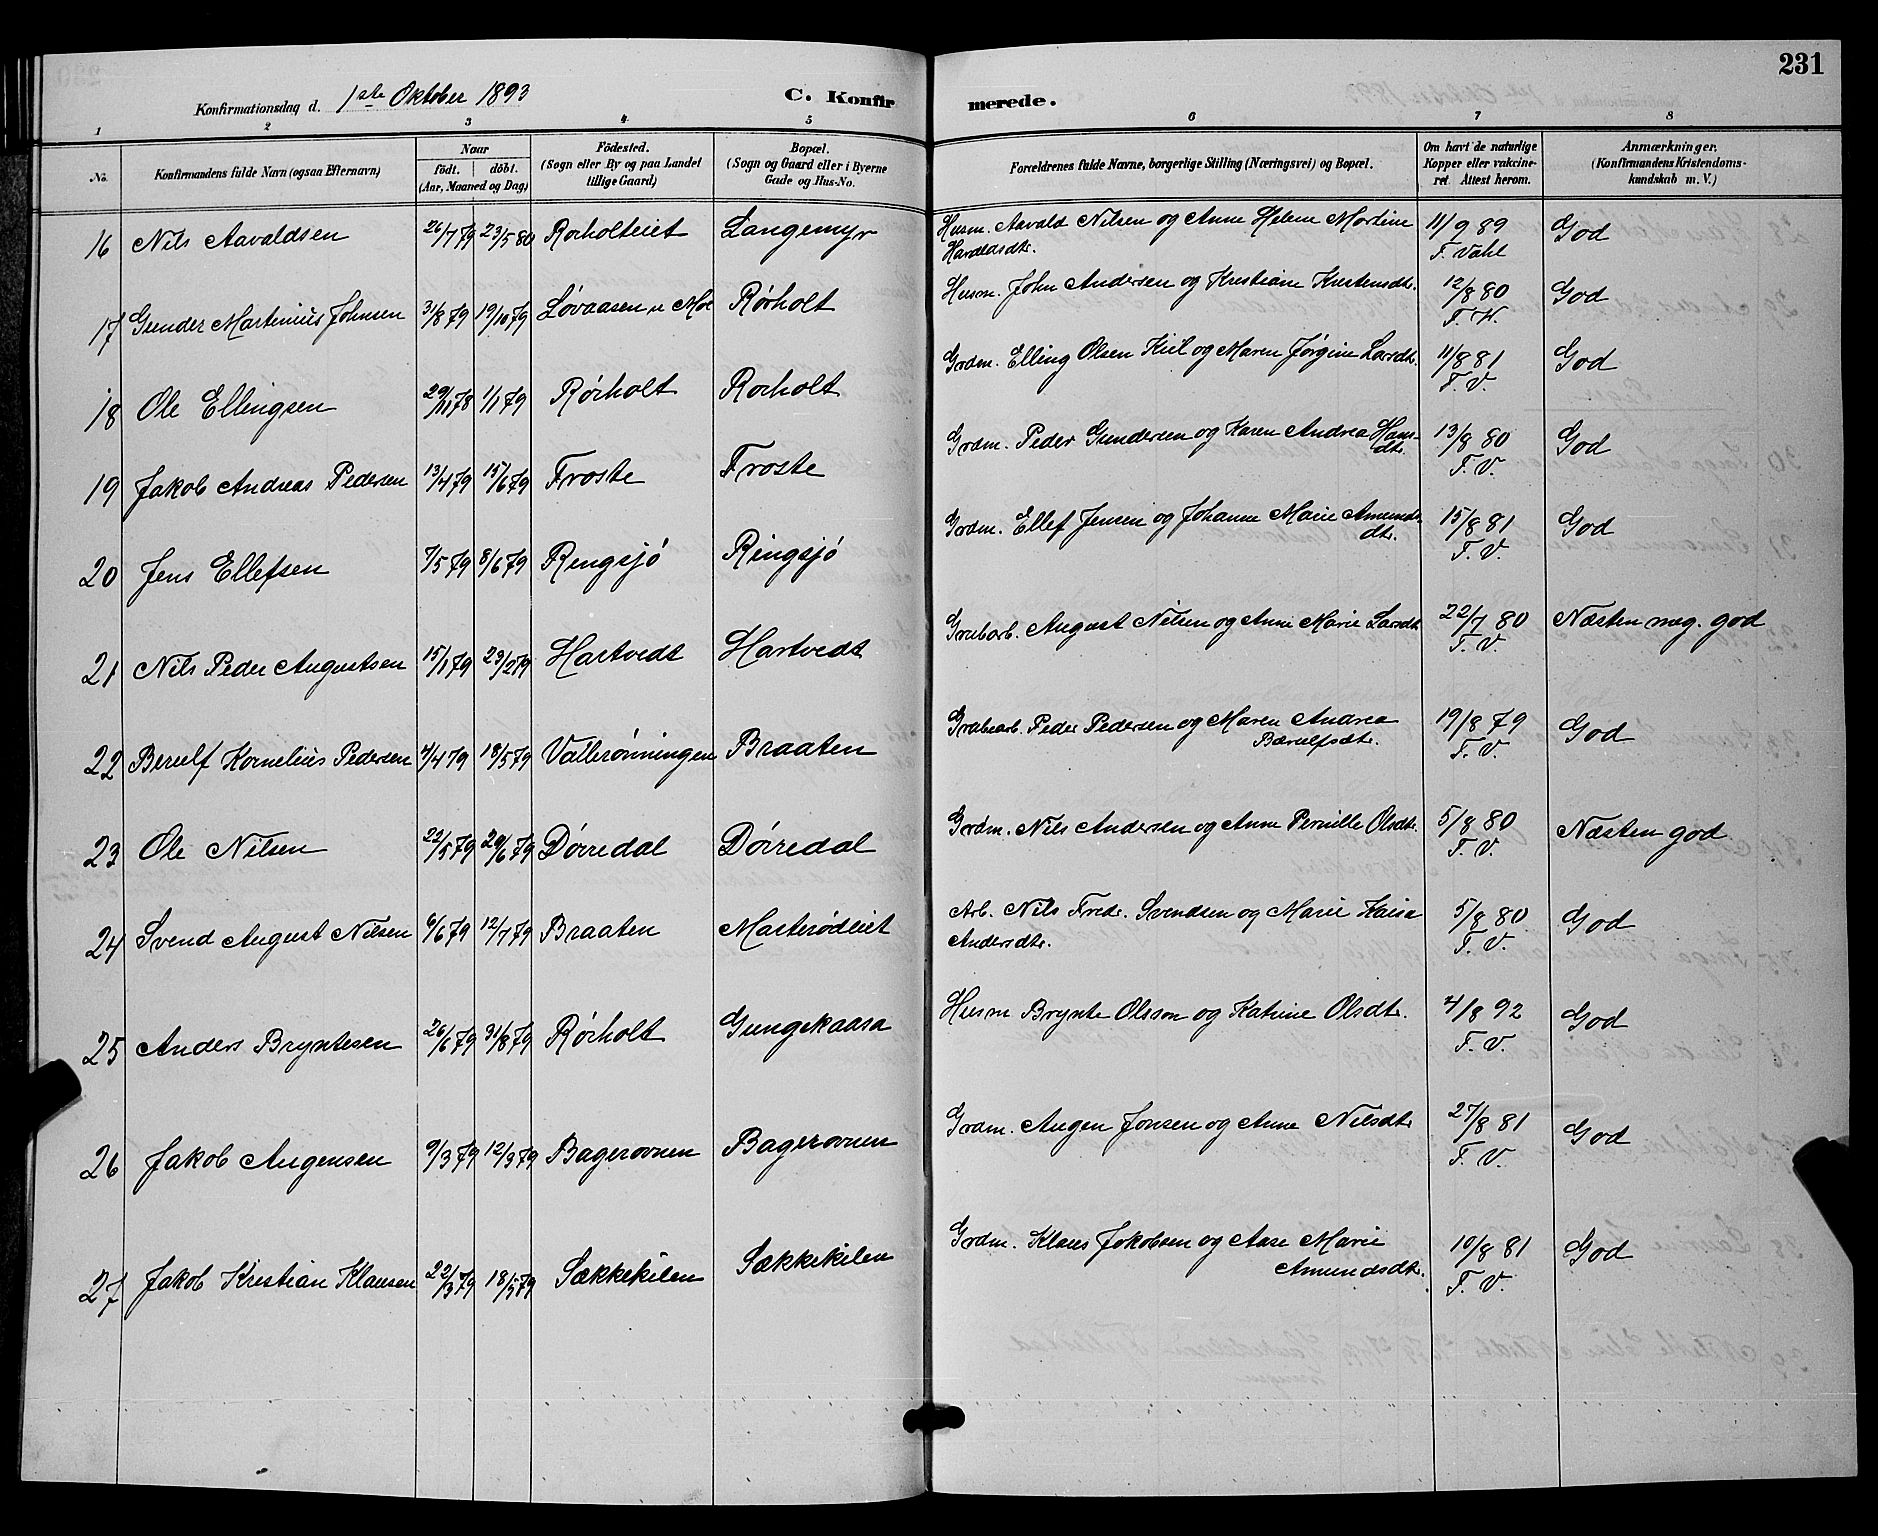 231
Konfirmationsdag d. 1ste Oktober 1893 C. Konfirmerede.
1 2 3 4 5 6 7 8
No. Konfirmandens fulde Navn (ogsaa Efternavn) Naar födt. döbt. (Aar, Maaned og Dag) Födested. (Sogn eller By og paa Landet tillige Gaard) Bopæl. (Sogn og Gaard eller i Byerne Gade og Hus-No. Forældrenes fulde Navne, borgerlige Stilling (Næringsvei) og Bopæl. Om havt de naturlige Kopper eller vakcineret. Attest herom. Anmærkninger. (Konfirmandens Kristendomskundskab m. V.)
16 Nils Aavaldsen 26/7 79 23/5 80 Rørholteiet Langemyr Husm. Aavald Nilsen og Anne Helene Mordine Haraldsdtr. 11/9 89 F. Vahl God
17 Gunder Martinius Johnsen 31/8 79 19/10 79 Løvaasen u. Moe Rørholt Husm. John Andersen og Kristiane Kristensdtr. 12/8 80 F. V. God
18 Ole Ellingsen 29/11 78 1/1 79 Rørholt Rørholt Grdm. Elling Olsen Kiil og Maren Jørgine Larsdtr. 11/8 81 F. V. God
19 Jakob Andreas Pedersen 13/4 79 15/6 79 Froste Froste Grdm. Peder Gundersen og Karen Andrea Hansdtr. 13/8 80 F. V. God
20 Jens Ellefsen 7/5 79 8/6 79 Ringsjø Ringsjø Grdm. Ellef Jensen og Johanne Marie Amundsdtr. 15/8 81 F. V. God
21 Nils Peder Augustsen 15/1 79 23/2 79 Hartvedt Hartvedt Grubarb. August Nilsen og Anne Marie Larsdtr. 22/7 80 F. V. Næsten meg. god
22 Berulf Kornelius Pedersen 4/4 79 18/5 79 Vallerønningen Braaten Grubearb. Peder Pedersen og Maren Andrea Bærulfsdtr. 19/8 79 F. V. God
23 Ole Nilsen 22/5 79 29/6 79 Dørredal Dørredal Grdm. Nils Andersen og Anne Pernille Olsdtr. 5/8 80 F. V. Næsten god
24 Svend August Nilsen 6/6 79 12/7 79 Braaten Masterødeiet Arb. Nils Fredr. Svendsen og Marie Kaisa Andersdtr. 5/8 80 F. V. God
25 Anders Bryntesen 26/6 79 31/8 79 Rørholt Gungekaasa Husm Brynte Olsson og Katrine Olsdtr. 4/8 92 F. V. God
26 Jakob Augensen 9/3 79 12/3 79 Bagerovnen Bagerovnen Grdm. Augen Jonsen og Anne Nilsdtr 27/8 81 F. V. God
27 Jakob Kristian Klausen 22/3 79 18/5 79 Sækkekilen Sækkekilen Grdm. Klaus Jakobsen og Aase Marie Amundsdtr. 10/8 81 F. V. God